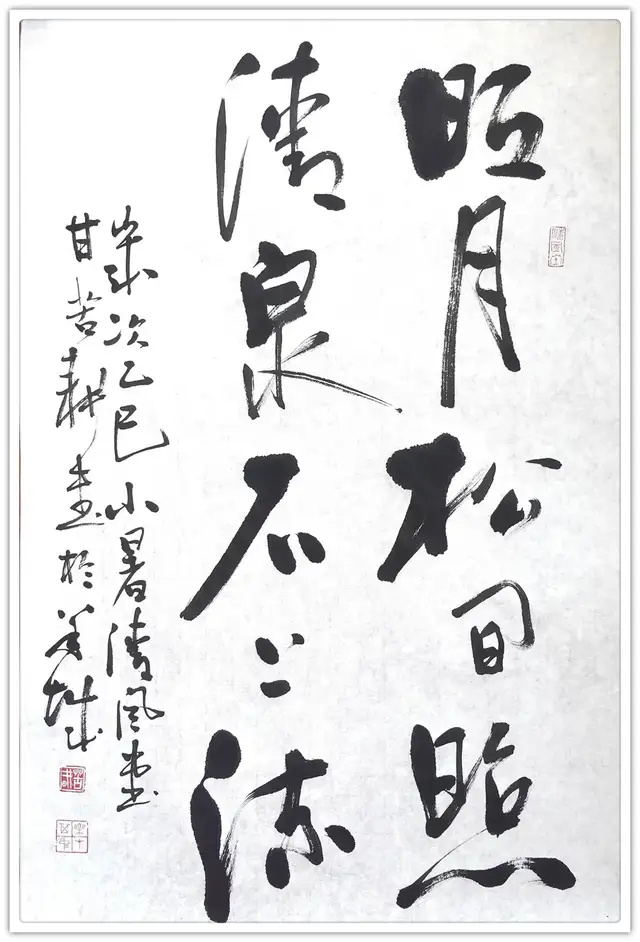 明月松間照
清泉石上流
歲次乙巳小暑清風堂
甘苦耕書於羊城